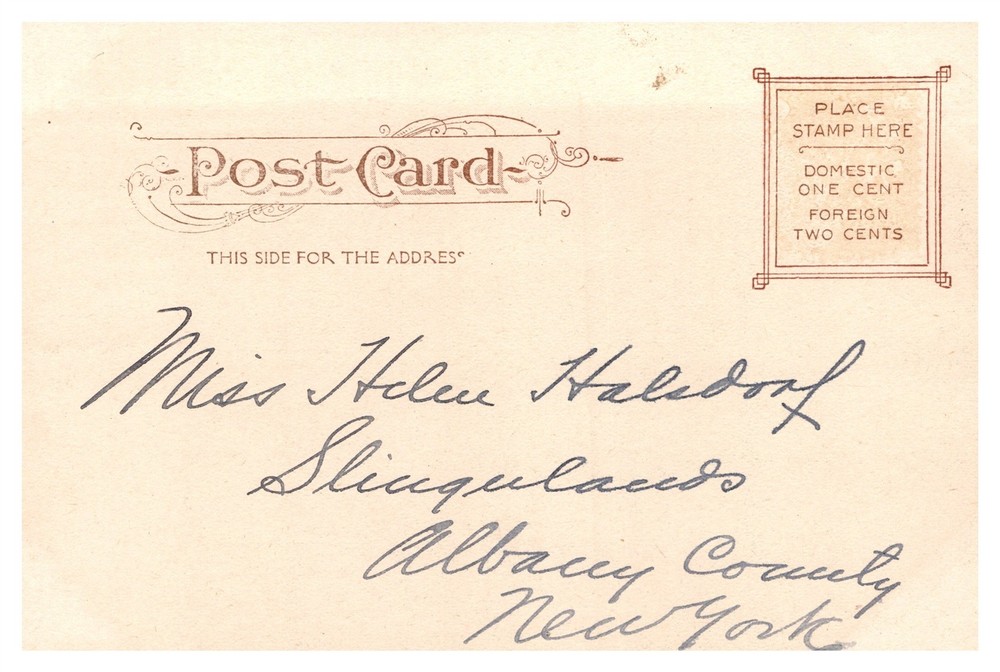 Post Card
THIS SIDE FOR THE ADDRESS
PLACE
STAMP HERE
DOMESTIC
ONE CENT
FOREIGN
TWO CENTS
Miss Helen Halsdorf
Slingerlands
Albany County
New York